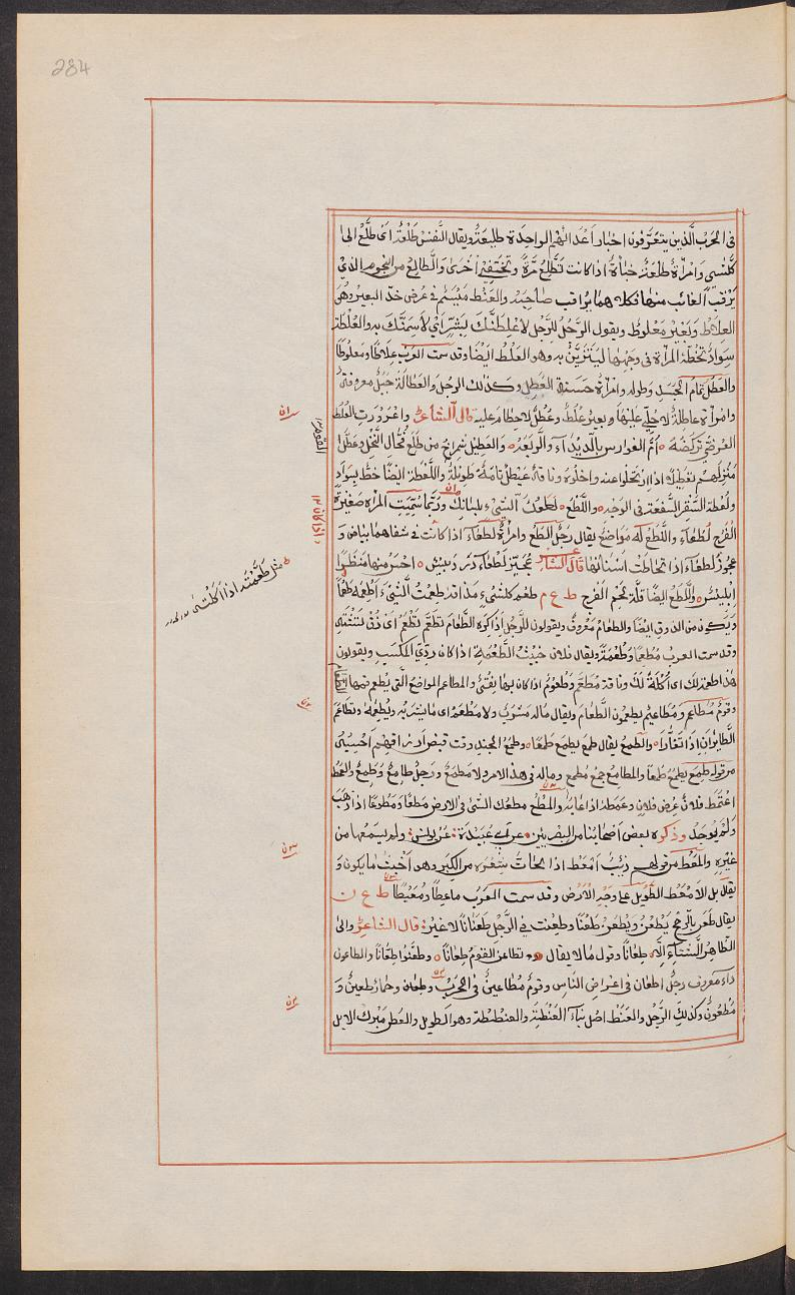 284
في الحرب الذين يتعرّفون اخبار اعدائهم الواحدة طليعة ويقال النفس طلعة اى طلع الى
كل شي وامراة طلعة خباة اذا كانت تطلع مرة وتختفي اخرى والطالع من النجوم الذي
يرقب الغائب منها فكلاهما يراقب صاحبه والعلط ميسم في عرض خد البعير وهى
العلاط وبعير معلوط ويقول الرجل للرجل لاعلطنك بشر اي لاسمنك به والعلطة
سواد تخطه المراة في وجهها ليتزين به وهو العلط ايضا وقد سمت العرب علاطا ومعلوطا
والعطل تمام الجسد وطوله وامراة حسنة العطل وكذلك الرجل والعطالة جبل معروف
وامراة عاطلة لا حلي عليها وبعير علط وعطل لا خطام عليه قال الشاعر واعرورت العلط
العرضي تركضه ام الفوارس بالديداء والربعة والعطيل شمراخ من طلع فحال النخل وعطل
منزلهم تعطيلا اذا ارتحلوا عنه واخلوه وناقة عيطل تامة طويلة واللعطة ايضا خط بسواد
ولعطة الصقر السفعة في الوجه واللطع لطعك الشيء بلسانك وربما سميت المراة صغيرة
الفرج لطعاء واللطع له مواضع يقال رجل الطع وامراة لطعاء اذا كانت في شفاهها بياض و
عجوز لطعاء اذا تحاطت اسنانها قال الشاعر عجيز لطعاء دردبيش احسن منها منظرا
ابليس واللطع ايضا قلة لحم الفرج ط ع م طعم كل شيء مذاقه طعمت الشيء اطعمه طعما
ويكون من الذوق ايضا والطعام معروف ويقولون للرجل اذا كره الطعام تطعم تطعم اى ذق تشتهي
وقد سمت العرب مطعما وطعمة ويقال فلان خبيث الطعمة اذا كان ردي المكسب ويقولون
هذا طعمة لك اى اكلة لك وناقة مطعم وطعوم اذا كان بها نقي والمطاعم المواضع التي يطعم فيها
وقوم مطاعم ومطاعيم يطعمون الطعام ويقال ماله مشرب ولا مطعم اى ما يشربه ويطعمه وتطاعم
الطايران اذا تغارا والطمع يقال طمع يطمع طمعا وطمع الجند وقت قبض ارزاقهم احسبه
من قوله طمع يطمع طمعا والمطامع جمع مطمع وماله في هذا الامر مطمع ورجل طامع وطمع والعمط
اعتمط فلان عرض فلان وعمطه اذا عابه والمطع مطعك الشى في الارض مطعا ومطوعا اذا ذهب
ولم يوجد وذكره بعض اصحابنا من البصريين عن ابي عبيدة عن يونس ولم يسمعها من
غيره والمعط من قولهم ذيب امعط اذا تحات شعره من الكبر وهو اخبث ما يكون و
يقال بل الامعط الطويل على وجه الارض وقد سمت العرب ماعطا ومعيطا ط ع ن
يقال طعن بالرمح يطعن ويطعن طعنا وطعنت في الرجل طعنانا لا غير قال الشاعر والى
الظاهر الشناة الا طعنانا وقول ما لا يقال وتطاعن القوم طعانا وطعنوا طعنانا والطاعون
داء معروف رجل طعان في اعراض الناس وقوم مطاعين في الحرب وطعن وحمار طعين و
مطعون وكذلك الرجل والعنط اصل بناء العنطنط والعنطنطة وهو الطويل والعطن مبرك الابل
مثل طعمته اذا اكلت